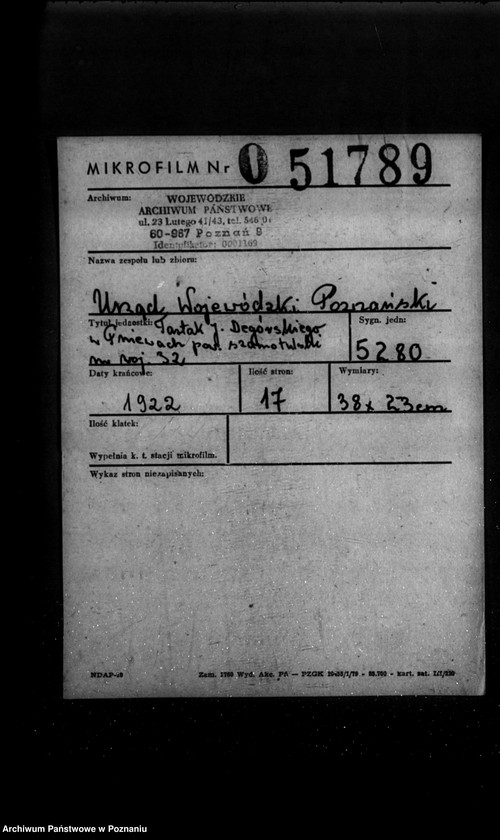 MIKROFILM Nr O 51789
Archiwum: WOJEWÓDZKIE
ARCHIWUM PAŃSTWOWE
ul. 23 Lutego 41/43, tel. 546 01
60-967 Poznań 9
Identyfikator: 0001169
Nazwa zespołu lub zbioru:
Urząd Wojewódzki Poznański
Tytuł jedzostki: Tartak J. Degórskiego
w Pniewach pow. szamotulski
Sygn. jedn:
5280
Daty krańcowe:
1922
Ilość stron:
17
Wymiary:
38 x 23 cm
Ilość klatek:
Wypełnia k. t. stacji mikrofilm.
Wykaz stron niezapisanych:
NDAP-
Zam. 1790 Wyd. Akc. Pń — PZGK
Archiwum Państwowe w Poznaniu